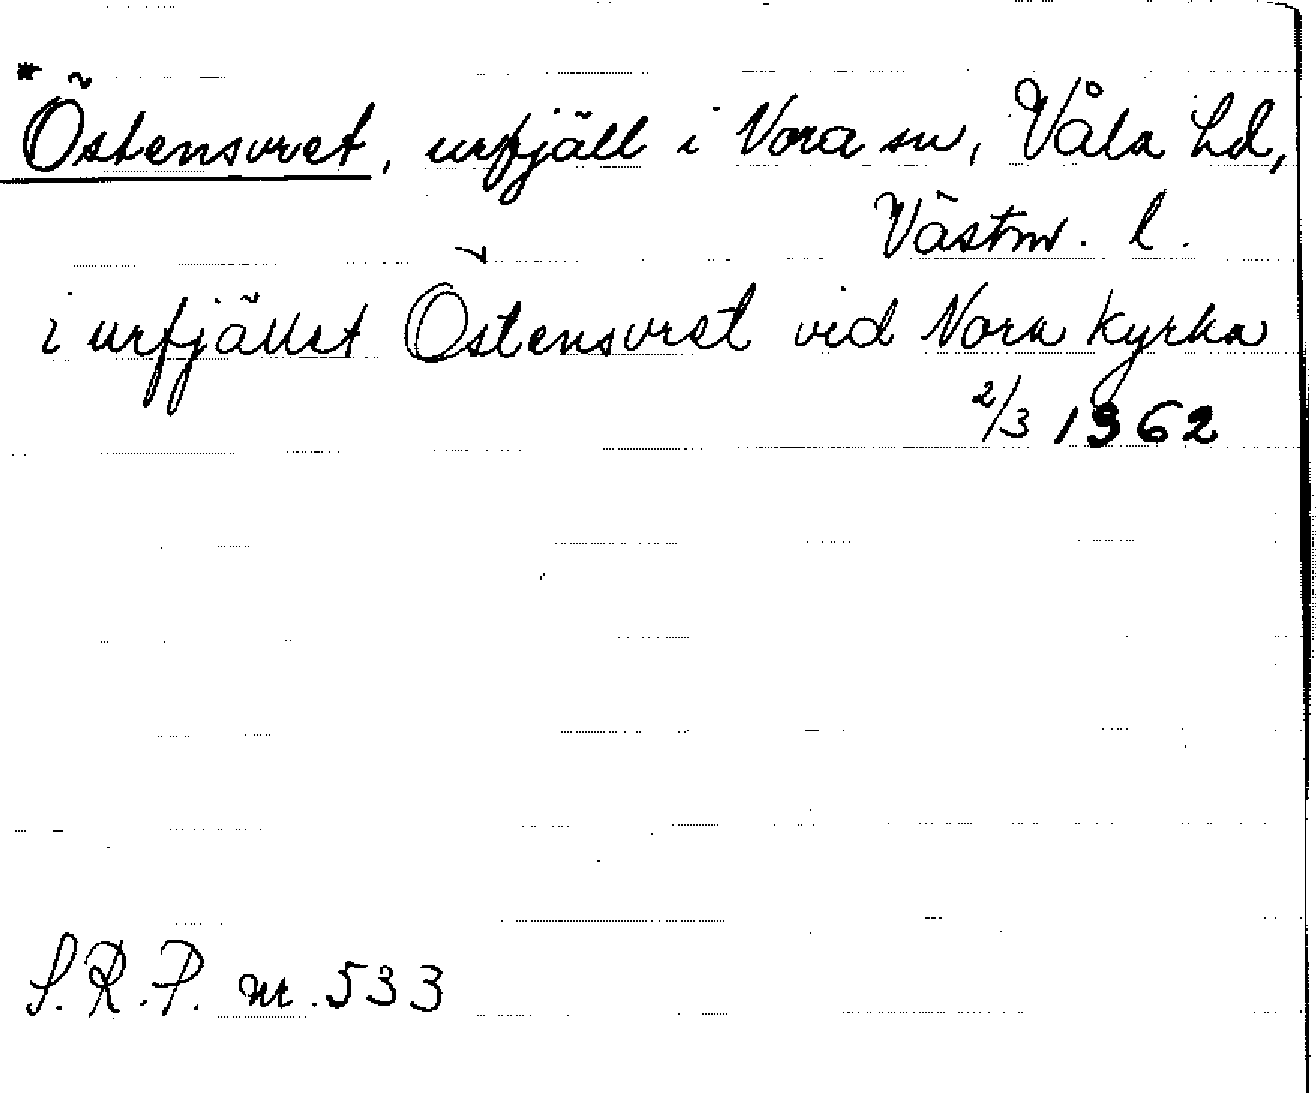 * Östensvret, urfjäll i Vora sn, Våla hd,
Västm. l.
i urfjället Östensvret vid Nora kyrka
2/3 1362
S.R.P. nr. 533